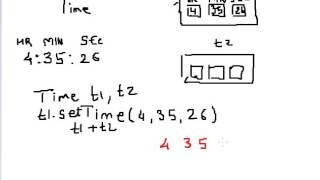 Time
14 35 26
t2
HR MIN SEC
4:35:26
Time t1, t2
t1.setTime(4,35,26)
t1+t2
4 35